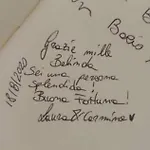 Grazie mille
Belinda
Sei una persona
splendida!
Buona Fortuna!
Laura & Carmine
18/8/2020